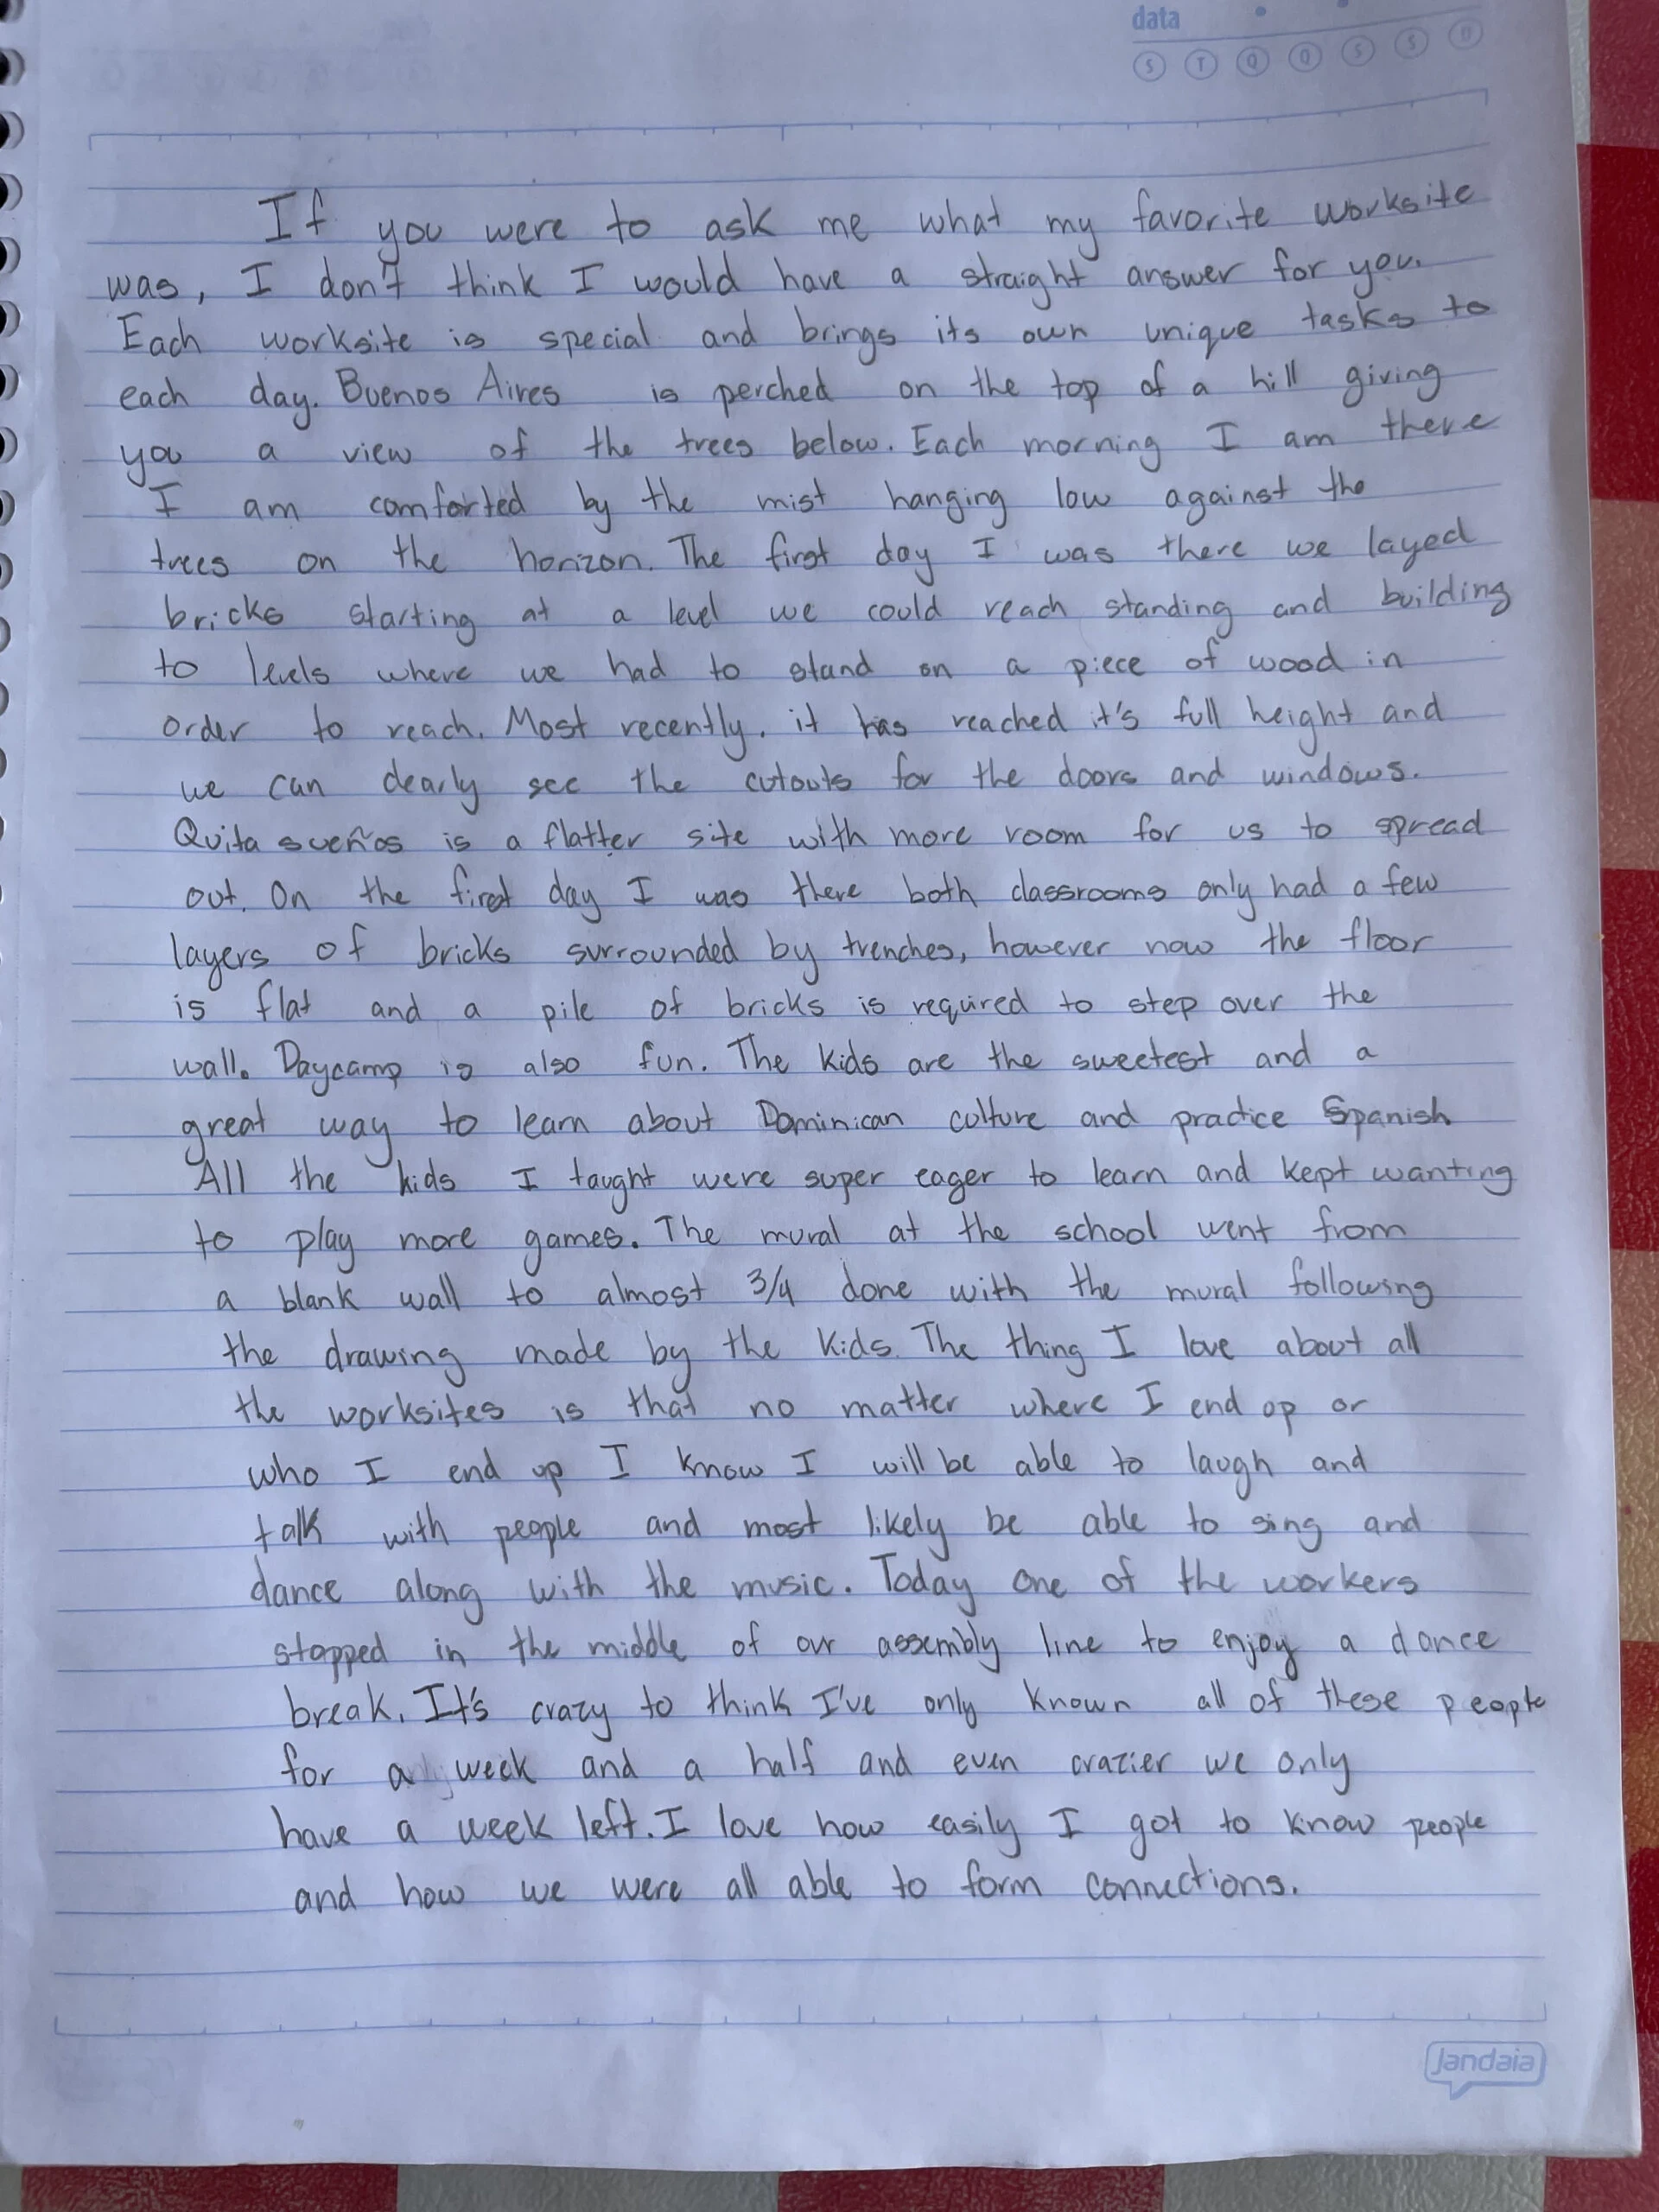 data
S T Q Q S S D
If you were to ask me what my favorite worksite
was, I don't think I would have a straight answer for you.
Each worksite is special and brings its own unique tasks to
each day. Buenos Aires is perched on the top of a hill giving
you a view of the trees below. Each morning I am there
I am comforted by the mist hanging low against the
trees on the horizon. The first day I was there we layed
bricks starting at a level we could reach standing and building
to levels where we had to stand on a piece of wood in
order to reach. Most recently, it has reached it's full height and
we can clearly see the cutouts for the doors and windows.
Quita sueños is a flatter site with more room for us to spread
out. On the first day I was there both classrooms only had a few
layers of bricks surrounded by trenches, however now the floor
is flat and a pile of bricks is required to step over the
wall. Daycamp is also fun. The kids are the sweetest and a
great way to learn about Dominican culture and practice Spanish
All the kids I taught were super eager to learn and kept wanting
to play more games. The mural at the school went from
a blank wall to almost 3/4 done with the mural following
the drawing made by the kids. The thing I love about all
the worksites is that no matter where I end up or
who I end up I know I will be able to laugh and
talk with people and most likely be able to sing and
dance along with the music. Today one of the workers
stopped in the middle of our assembly line to enjoy a dance
break. It's crazy to think I've only known all of these people
for a week and a half and even crazier we only
have a week left. I love how easily I got to know people
and how we were all able to form connections.
jandaia